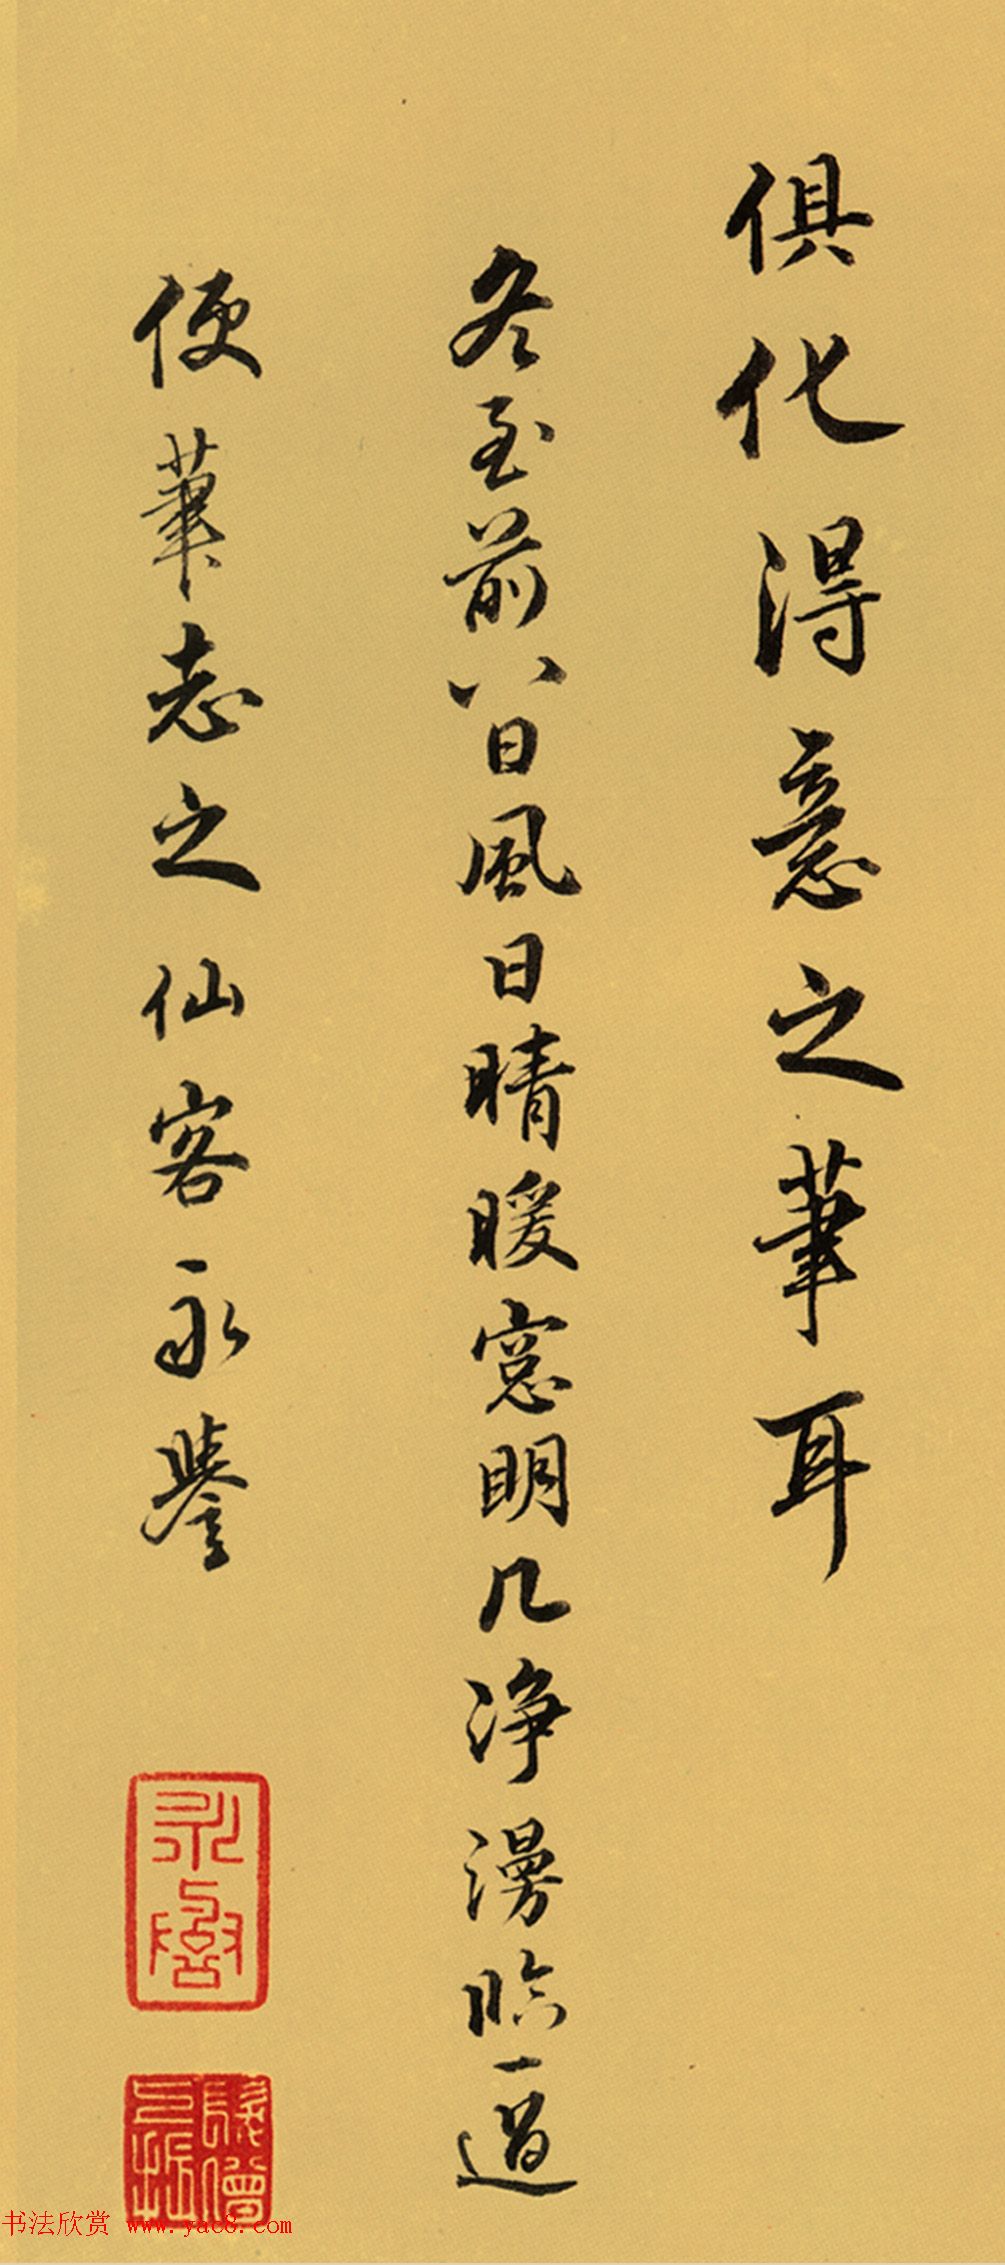 俱化得意之筆耳
冬至前八日風日晴暖窓明几浄漫臨一過
便筆志之仙客永譽
永譽
书法欣赏 www.yac8.com